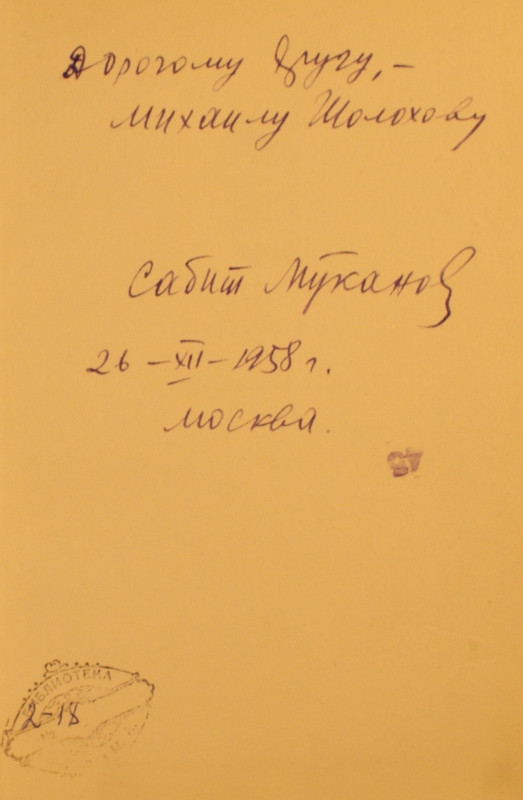 Дорогому другу, –
Михаилу Шолохову
Сабит Муканов
26 – XII – 1958 г.
Москва.
БИБЛИОТЕКА
2-18